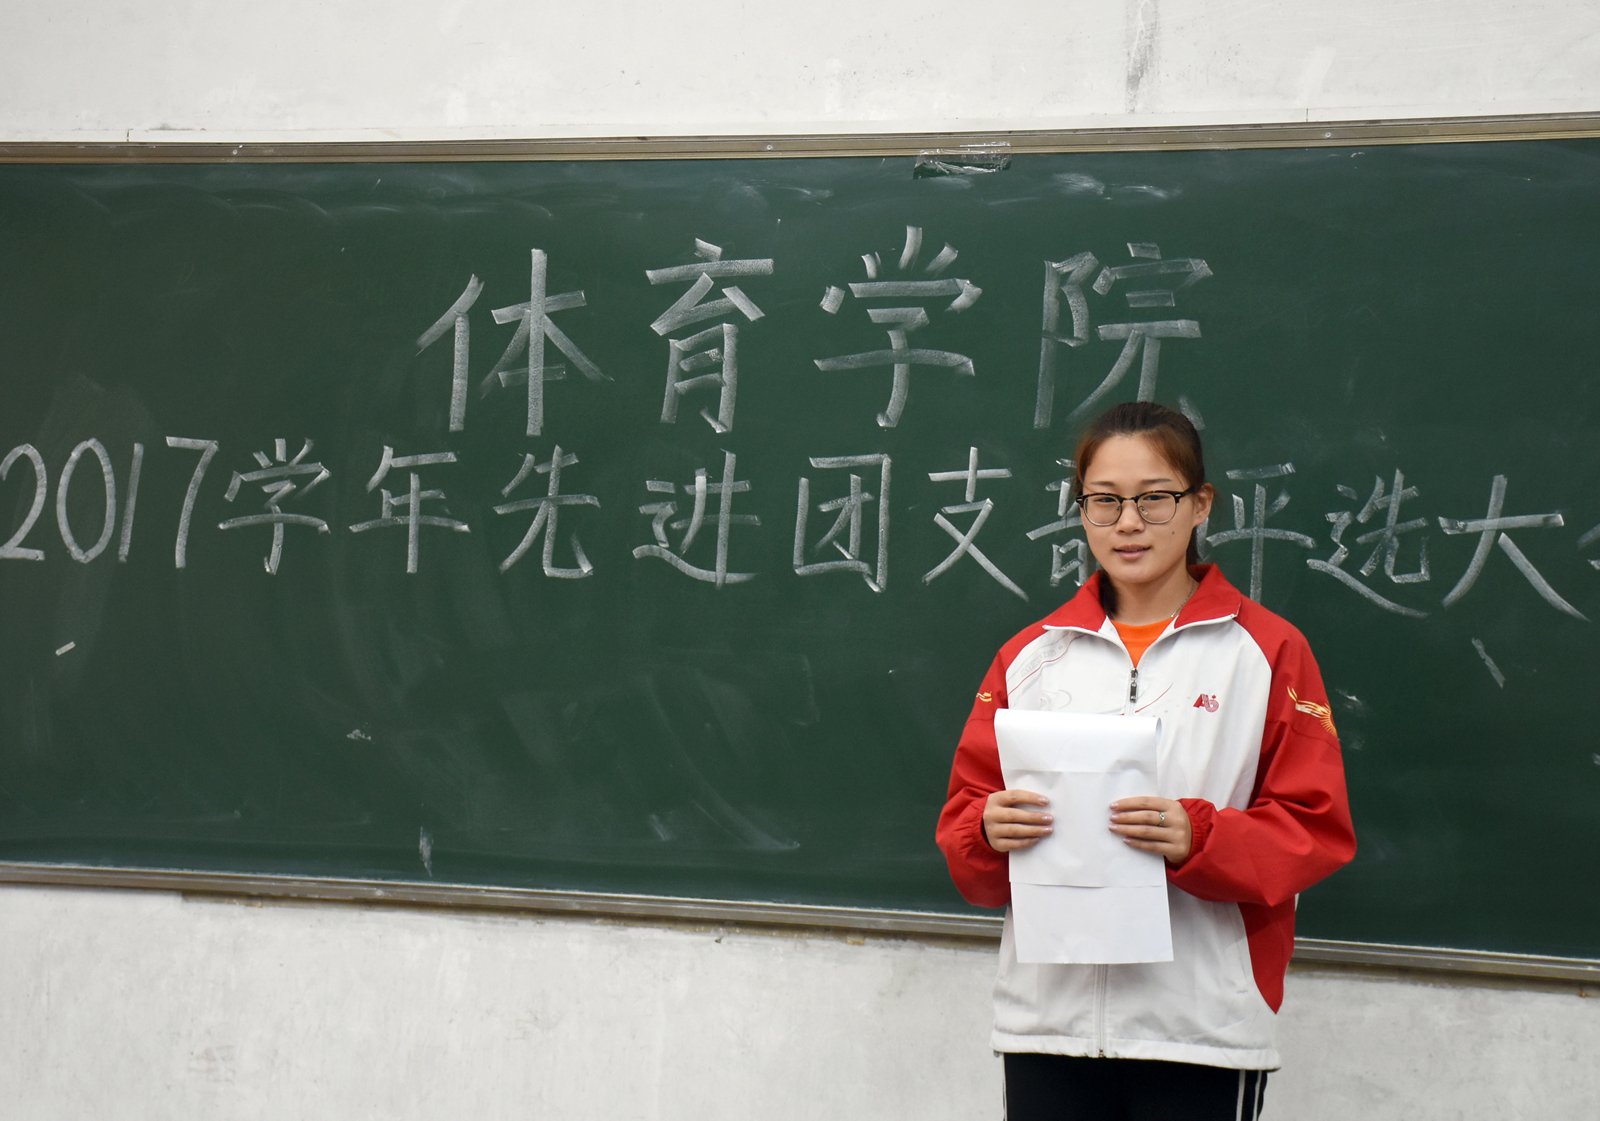 体育学院
2017学年先进团支部评选大